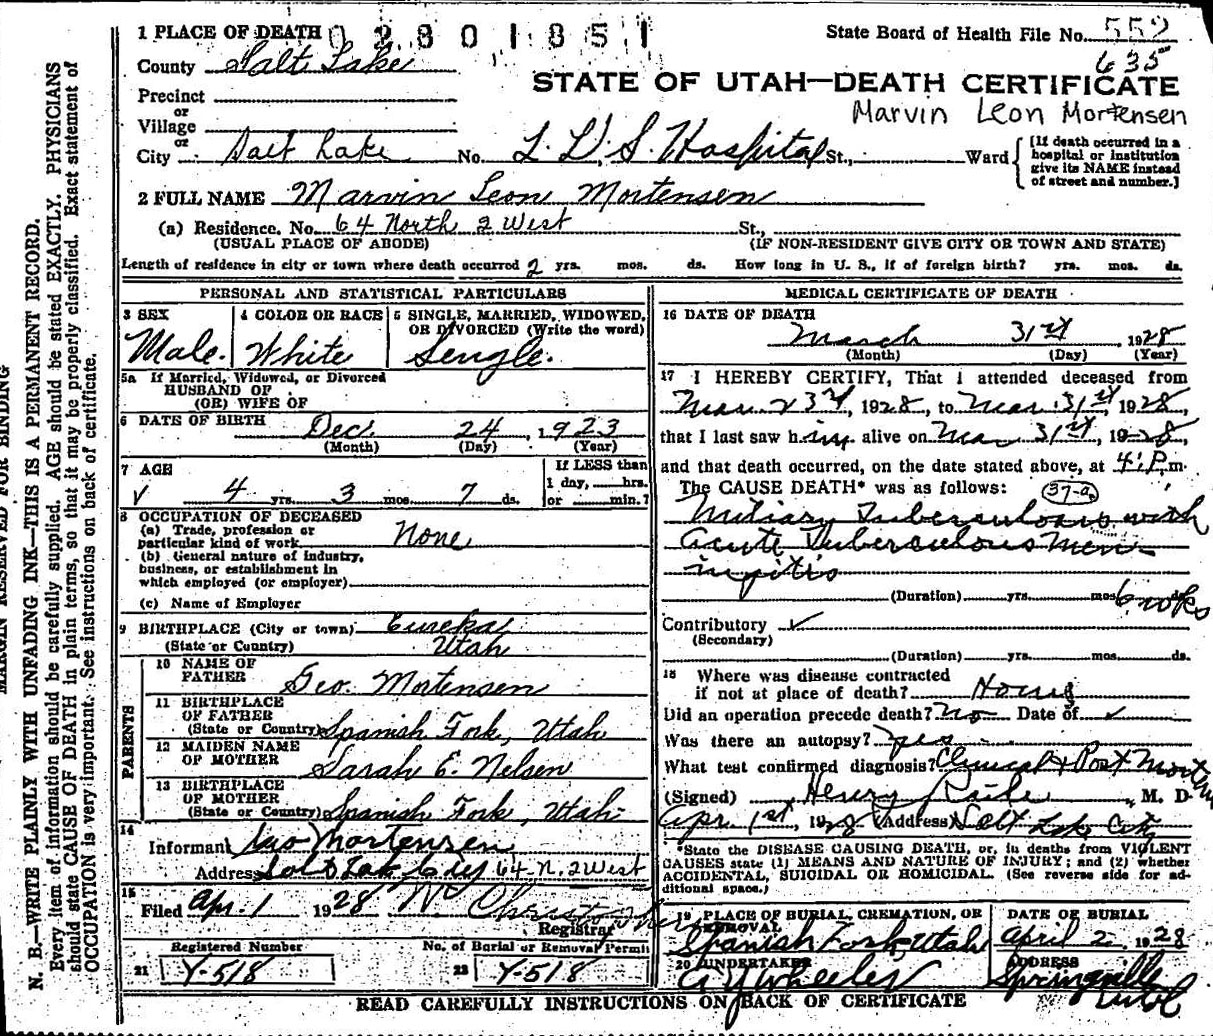 1 PLACE OF DEATH 02801851
State Board of Health File No. 552
635
County Salt Lake
STATE OF UTAH—DEATH CERTIFICATE
Marvin Leon Mortensen
Precinct
or
Village
or
City Salt Lake No. L. D. S. Hospital St., Ward
[If death occurred in a hospital or institution give its NAME instead of street and number.]
2 FULL NAME Marvin Leon Mortensen
(a) Residence. No. 64 North 2 West St.,
(USUAL PLACE OF ABODE) (IF NON-RESIDENT GIVE CITY OR TOWN AND STATE)
Length of residence in city or town where death occurred 2 yrs. mos. ds. How long in U. S., if of foreign birth? yrs. mos. ds.
PERSONAL AND STATISTICAL PARTICULARS
3 SEX
Male.
4 COLOR OR RACE
White
5 SINGLE, MARRIED, WIDOWED,
OR DIVORCED (Write the word)
Single.
5a If Married, Widowed, or Divorced
HUSBAND OF
(OR) WIFE OF
6 DATE OF BIRTH Dec. 24, 1923
(Month) (Day) (Year)
7 AGE
4 yrs. 3 mos. 7 ds.
If LESS than
1 day, hrs.
or min.?
8 OCCUPATION OF DECEASED
(a) Trade, profession or
particular kind of work None
(b) General nature of industry,
business, or establishment in
which employed (or employer)
(c) Name of Employer
9 BIRTHPLACE (City or town) Eureka
(State or Country) Utah
PARENTS
10 NAME OF
FATHER Geo. Mortensen
11 BIRTHPLACE
OF FATHER
(State or Country) Spanish Fork, Utah
12 MAIDEN NAME
OF MOTHER Sarah E. Nelsen
13 BIRTHPLACE
OF MOTHER
(State or Country) Spanish Fork, Utah
14
Informant Geo Mortensen
Address Salt Lake City 64 N. 2 West
15
Filed Apr. 1 1928
Registrar
Registered Number
21 Y-518
No. of Burial or Removal Permit
22 Y-518
MEDICAL CERTIFICATE OF DEATH
16 DATE OF DEATH
March 31st, 1928
(Month) (Day) (Year)
17 I HEREBY CERTIFY, That I attended deceased from
Mar. 23rd, 1928, to Mar. 31st, 1928,
that I last saw him alive on Mar 31st, 1928,
and that death occurred, on the date stated above, at 4:P.m.
The CAUSE DEATH* was as follows: 37-a
Miliary Tuberculosis with
acute Tuberculous Men-
ingitis
(Duration) yrs. mos. 6 wks
Contributory
(Secondary)
(Duration) yrs. mos. ds.
18 Where was disease contracted
if not at place of death? Home
Did an operation precede death? No Date of
Was there an autopsy? yes
What test confirmed diagnosis? Clinical & Post Mortem
(Signed) Henry Raile, M. D.
Apr. 1st, 1928 (Address) Salt Lake City
*State the DISEASE CAUSING DEATH, or, in deaths from VIOLENT
CAUSES state (1) MEANS AND NATURE OF INJURY; and (2) whether
ACCIDENTAL, SUICIDAL OR HOMICIDAL. (See reverse side for ad-
ditional space.)
19 PLACE OF BURIAL, CREMATION, OR
REMOVAL
Spanish Fork Utah
DATE OF BURIAL
April 2 1928
20 UNDERTAKER
Wheeler
ADDRESS
Springville
Utah
READ CAREFULLY INSTRUCTIONS ON BACK OF CERTIFICATE
MARGIN RESERVED FOR BINDING
N. B.—WRITE PLAINLY WITH UNFADING INK—THIS IS A PERMANENT RECORD.
Every item of information should be carefully supplied. AGE should be stated EXACTLY. PHYSICIANS
should state CAUSE OF DEATH in plain terms, so that it may be properly classified. Exact statement of
OCCUPATION is very important. See instructions on back of certificate.